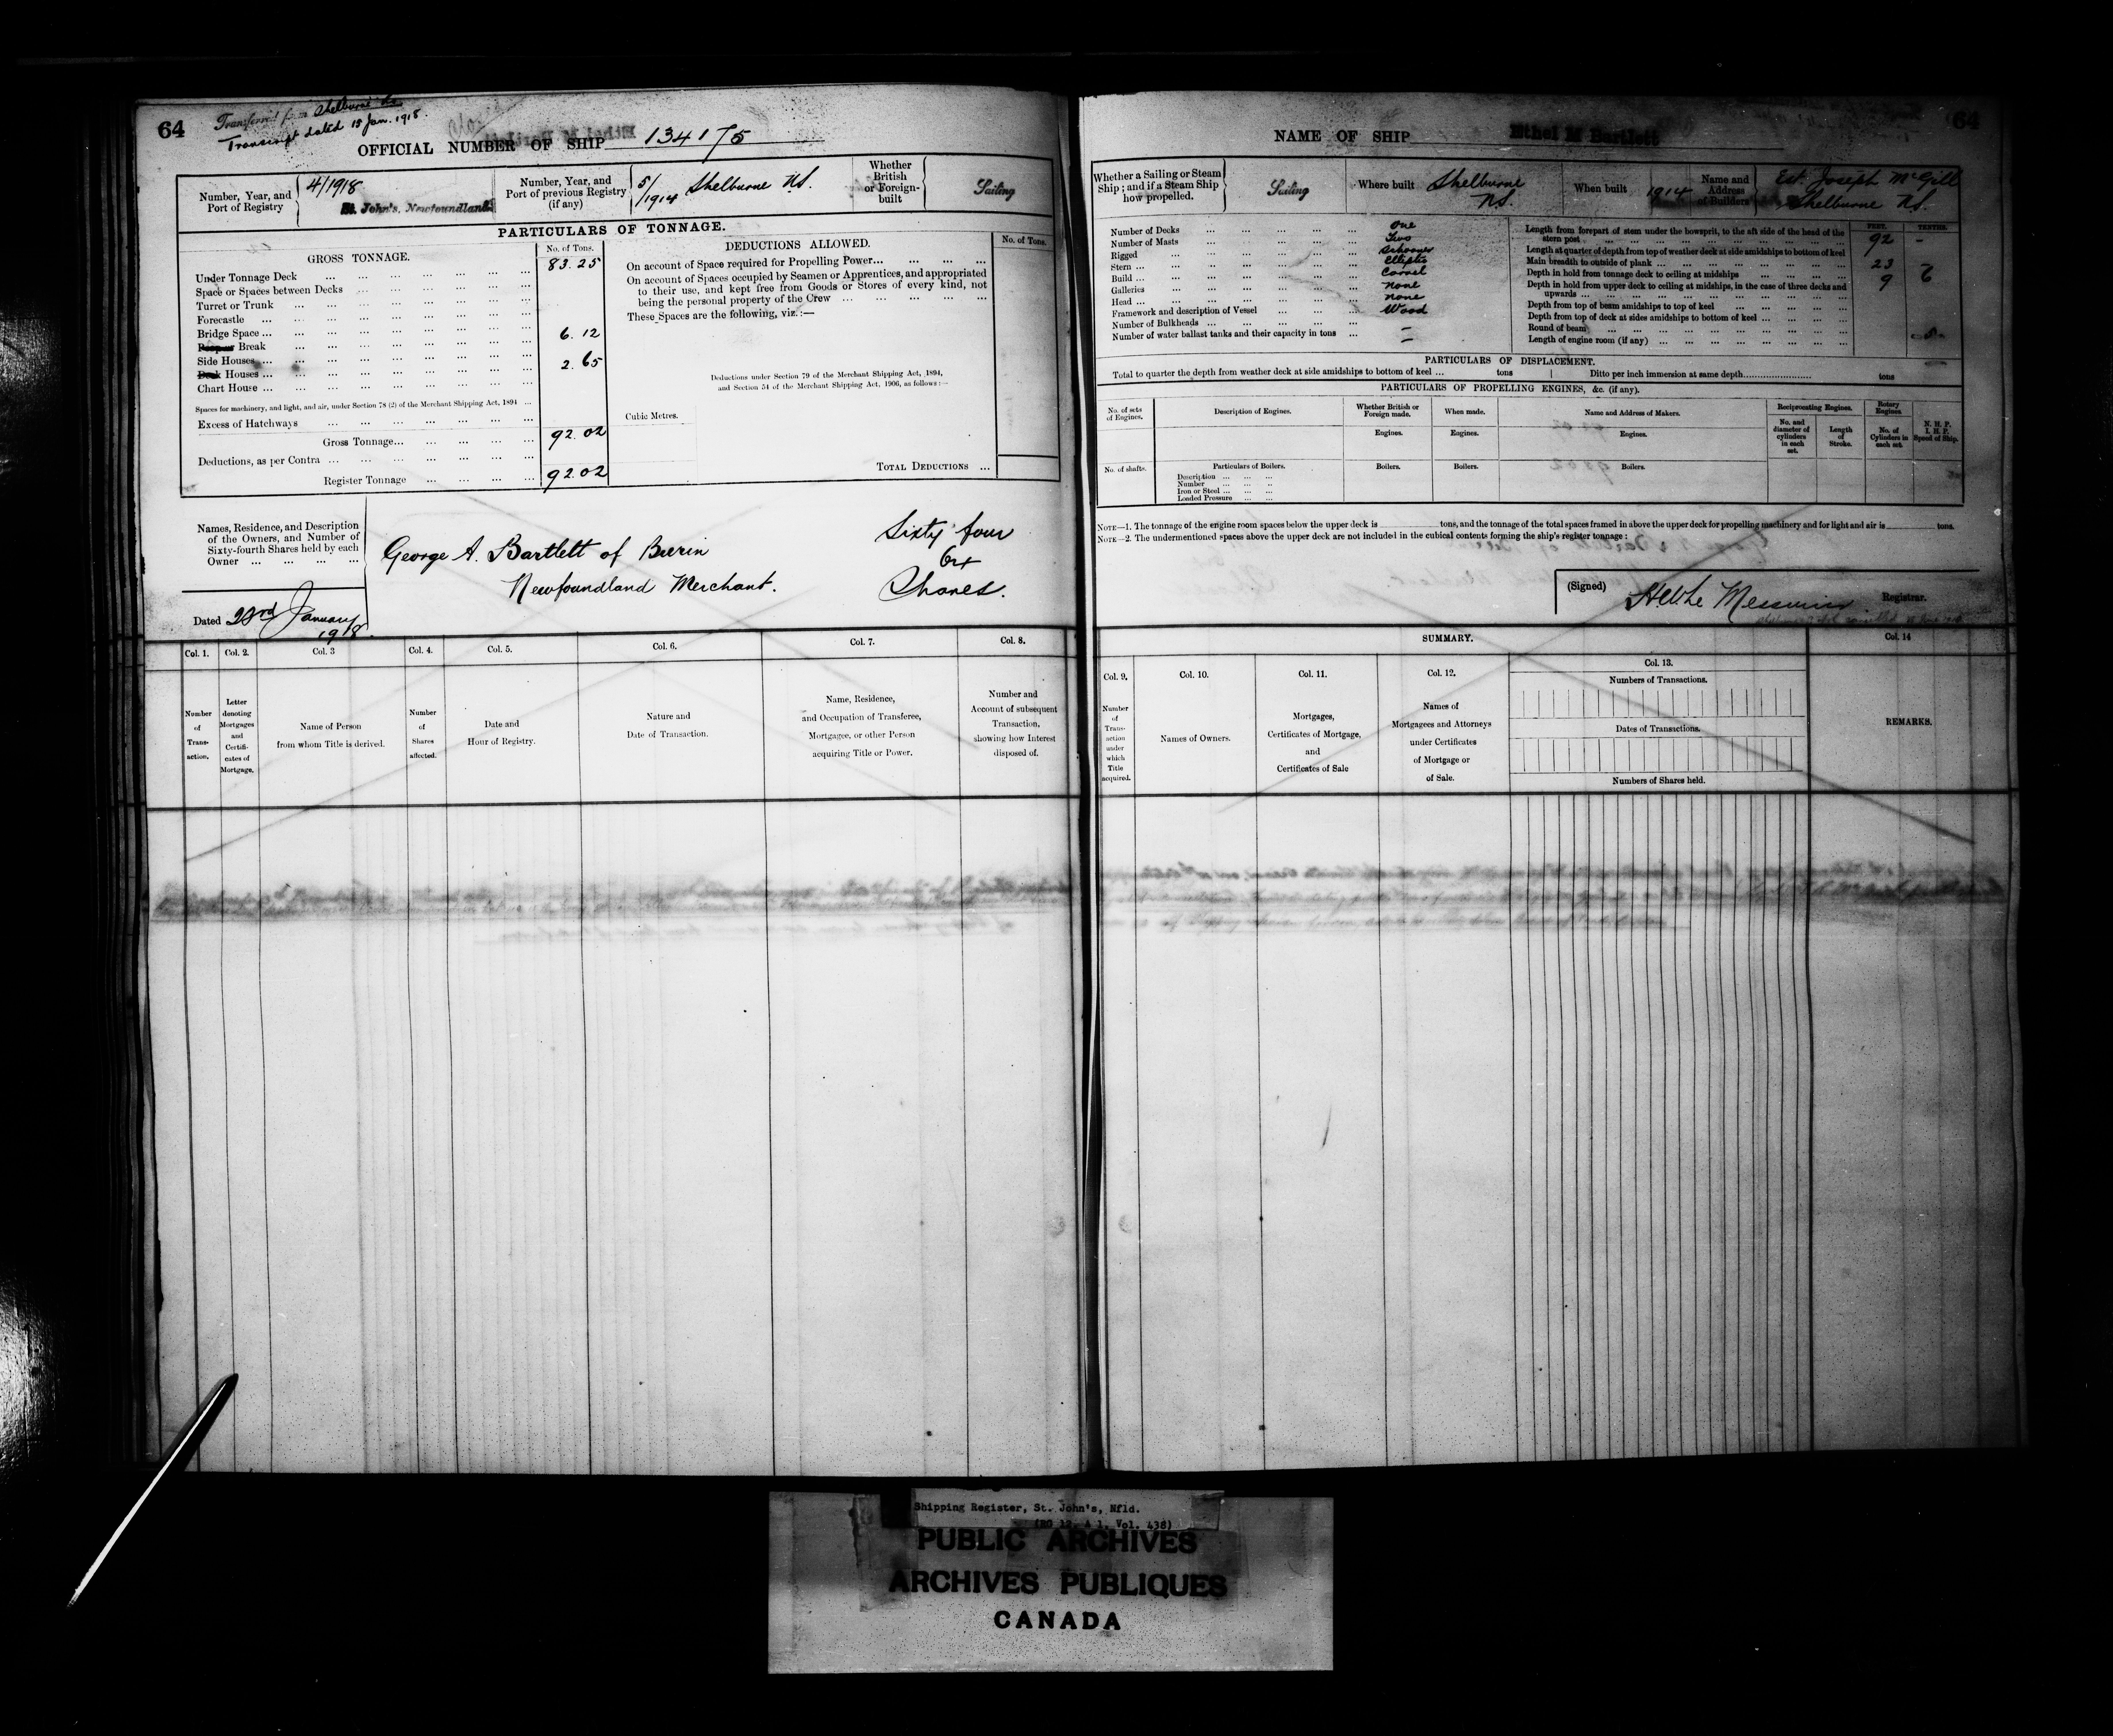 64
Transferred from Shelburne NS
Transcript dated 15 Jan. 1918.
OFFICIAL NUMBER OF SHIP 134175
Number, Year, and Port of Registry
4/1918
St. John's, Newfoundland
Number, Year, and Port of previous Registry (if any)
5/1914 Shelburne NS.
Whether British or Foreign-built
Sailing
PARTICULARS OF TONNAGE.
GROSS TONNAGE.
No. of Tons.
Under Tonnage Deck 83.25
Space or Spaces between Decks
Turret or Trunk
Forecastle
Bridge Space
Break 6.12
Side Houses
Houses 2.65
Chart House
Spaces for machinery, and light, and air, under Section 78 (2) of the Merchant Shipping Act, 1894
Excess of Hatchways
Gross Tonnage 92.02
Deductions, as per Contra
Register Tonnage 92.02
DEDUCTIONS ALLOWED.
No. of Tons.
On account of Space required for Propelling Power
On account of Spaces occupied by Seamen or Apprentices, and appropriated
to their use, and kept free from Goods or Stores of every kind, not
being the personal property of the Crew
These Spaces are the following, viz.:—
Deductions under Section 79 of the Merchant Shipping Act, 1894,
and Section 54 of the Merchant Shipping Act, 1906, as follows:—
Cubic Metres.
TOTAL DEDUCTIONS
Names, Residence, and Description
of the Owners, and Number of
Sixty-fourth Shares held by each
Owner
George A. Bartlett of Burin
Newfoundland Merchant.
Sixty four
64
Shares.
Dated 23rd January
1918.
Col. 1.
Col. 2.
Col. 3
Col. 4.
Col. 5.
Col. 6.
Col. 7.
Col. 8.
Number of Transaction.
Letter denoting Mortgages and Certificates of Mortgage.
Name of Person
from whom Title is derived.
Number of Shares affected.
Date and
Hour of Registry.
Nature and
Date of Transaction.
Name, Residence,
and Occupation of Transferee,
Mortgagee, or other Person
acquiring Title or Power.
Number and
Account of subsequent
Transaction,
showing how Interest
disposed of.
64
NAME OF SHIP Ethel M Bartlett
Whether a Sailing or Steam
Ship; and if a Steam Ship
how propelled.
Sailing
Where built Shelburne
NS.
When built 1914
Name and
Address
of Builders
Est. Joseph McGill
Shelburne NS.
Number of Decks One
Number of Masts Two
Rigged Schooner
Stern Elliptic
Build Carvel
Galleries None
Head None
Framework and description of Vessel Wood
Number of Bulkheads –
Number of water ballast tanks and their capacity in tons –
FEET. TENTHS.
Length from forepart of stem under the bowsprit, to the aft side of the head of the
stern post 92 -
Length at quarter of depth from top of weather deck at side amidships to bottom of keel
Main breadth to outside of plank 23 -
Depth in hold from tonnage deck to ceiling at midships 9 6
Depth in hold from upper deck to ceiling at midships, in the case of three decks and
upwards
Depth from top of beam amidships to top of keel
Depth from top of deck at sides amidships to bottom of keel
Round of beam 5
Length of engine room (if any)
PARTICULARS OF DISPLACEMENT.
Total to quarter the depth from weather deck at side amidships to bottom of keel ... tons
Ditto per inch immersion at same depth tons
PARTICULARS OF PROPELLING ENGINES, &c. (if any).
No. of sets of Engines.
Description of Engines.
Whether British or Foreign made.
When made.
Name and Address of Makers.
Reciprocating Engines.
Rotary Engines.
N. H. P.
I. H. P.
Speed of Ship.
Engines.
Engines.
Engines.
No. and diameter of cylinders in each set.
Length of Stroke.
No. of Cylinders in each set.
No. of shafts.
Particulars of Boilers.
Boilers.
Boilers.
Boilers.
Description
Number
Iron or Steel
Loaded Pressure
NOTE—1. The tonnage of the engine room spaces below the upper deck is tons, and the tonnage of the total spaces framed in above the upper deck for propelling machinery and for light and air is tons.
NOTE—2. The undermentioned spaces above the upper deck are not included in the cubical contents forming the ship's register tonnage:
(Signed)
Registrar.
SUMMARY.
Col. 9.
Col. 10.
Col. 11.
Col. 12.
Col. 13.
Col. 14
Number of Transaction under which Title acquired.
Names of Owners.
Mortgages,
Certificates of Mortgage,
and
Certificates of Sale
Names of
Mortgagees and Attorneys
under Certificates
of Mortgage or
of Sale.
Numbers of Transactions.
Dates of Transactions.
Numbers of Shares held.
REMARKS.
Shipping Register, St. John's, Nfld.
(RG 12, A 1, Vol. 438)
PUBLIC ARCHIVES
ARCHIVES PUBLIQUES
CANADA